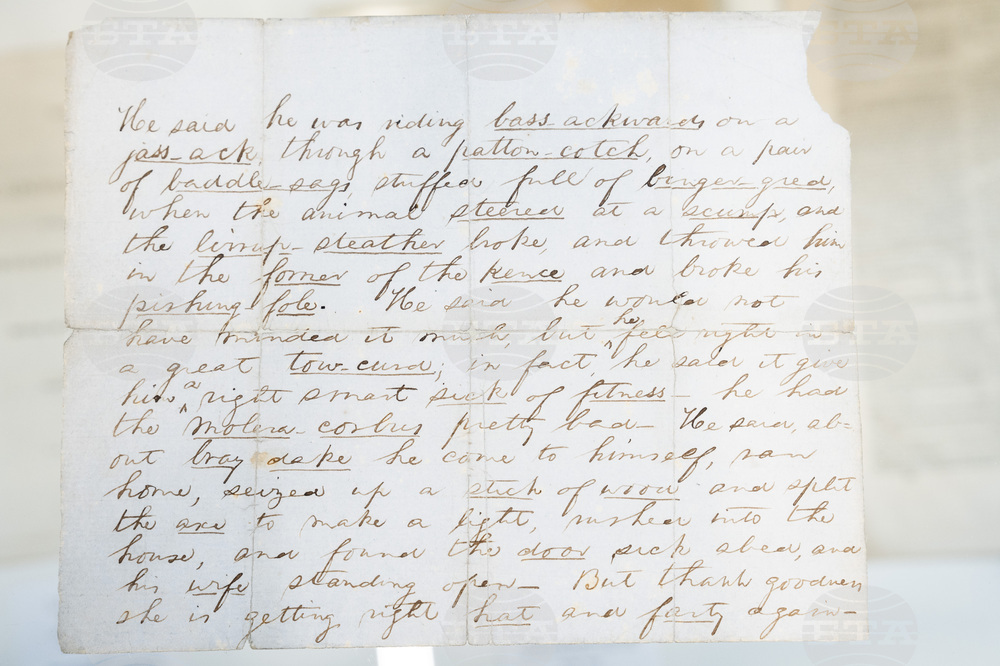 He said he was riding bass-ackwards on a
jass-ack, through a patton-cotch, on a pair
of baddle-sags, stuffed full of binger-gred,
when the animal steered at a scump, and
the lirrup-steather broke, and throwed him
in the forner of the kence and broke his
pishing-fole. He said he would not
have minded it much, but he fell right in
a great tow-curd; in fact, he said it give
him a right smart sick of fitness— he had
the molera-corbus pretty bad— He said, ab=
out bray dake he came to himself, ran
home, seized up a stick of wood and split
the axe to make a light, rushed into the
house, and found the door sick abed, and
his wife standing open— But thank goodness
she is getting right hat and farty again—
BTA
BTA
BTA
BTA
BTA
BTA
BTA
BTA
BTA